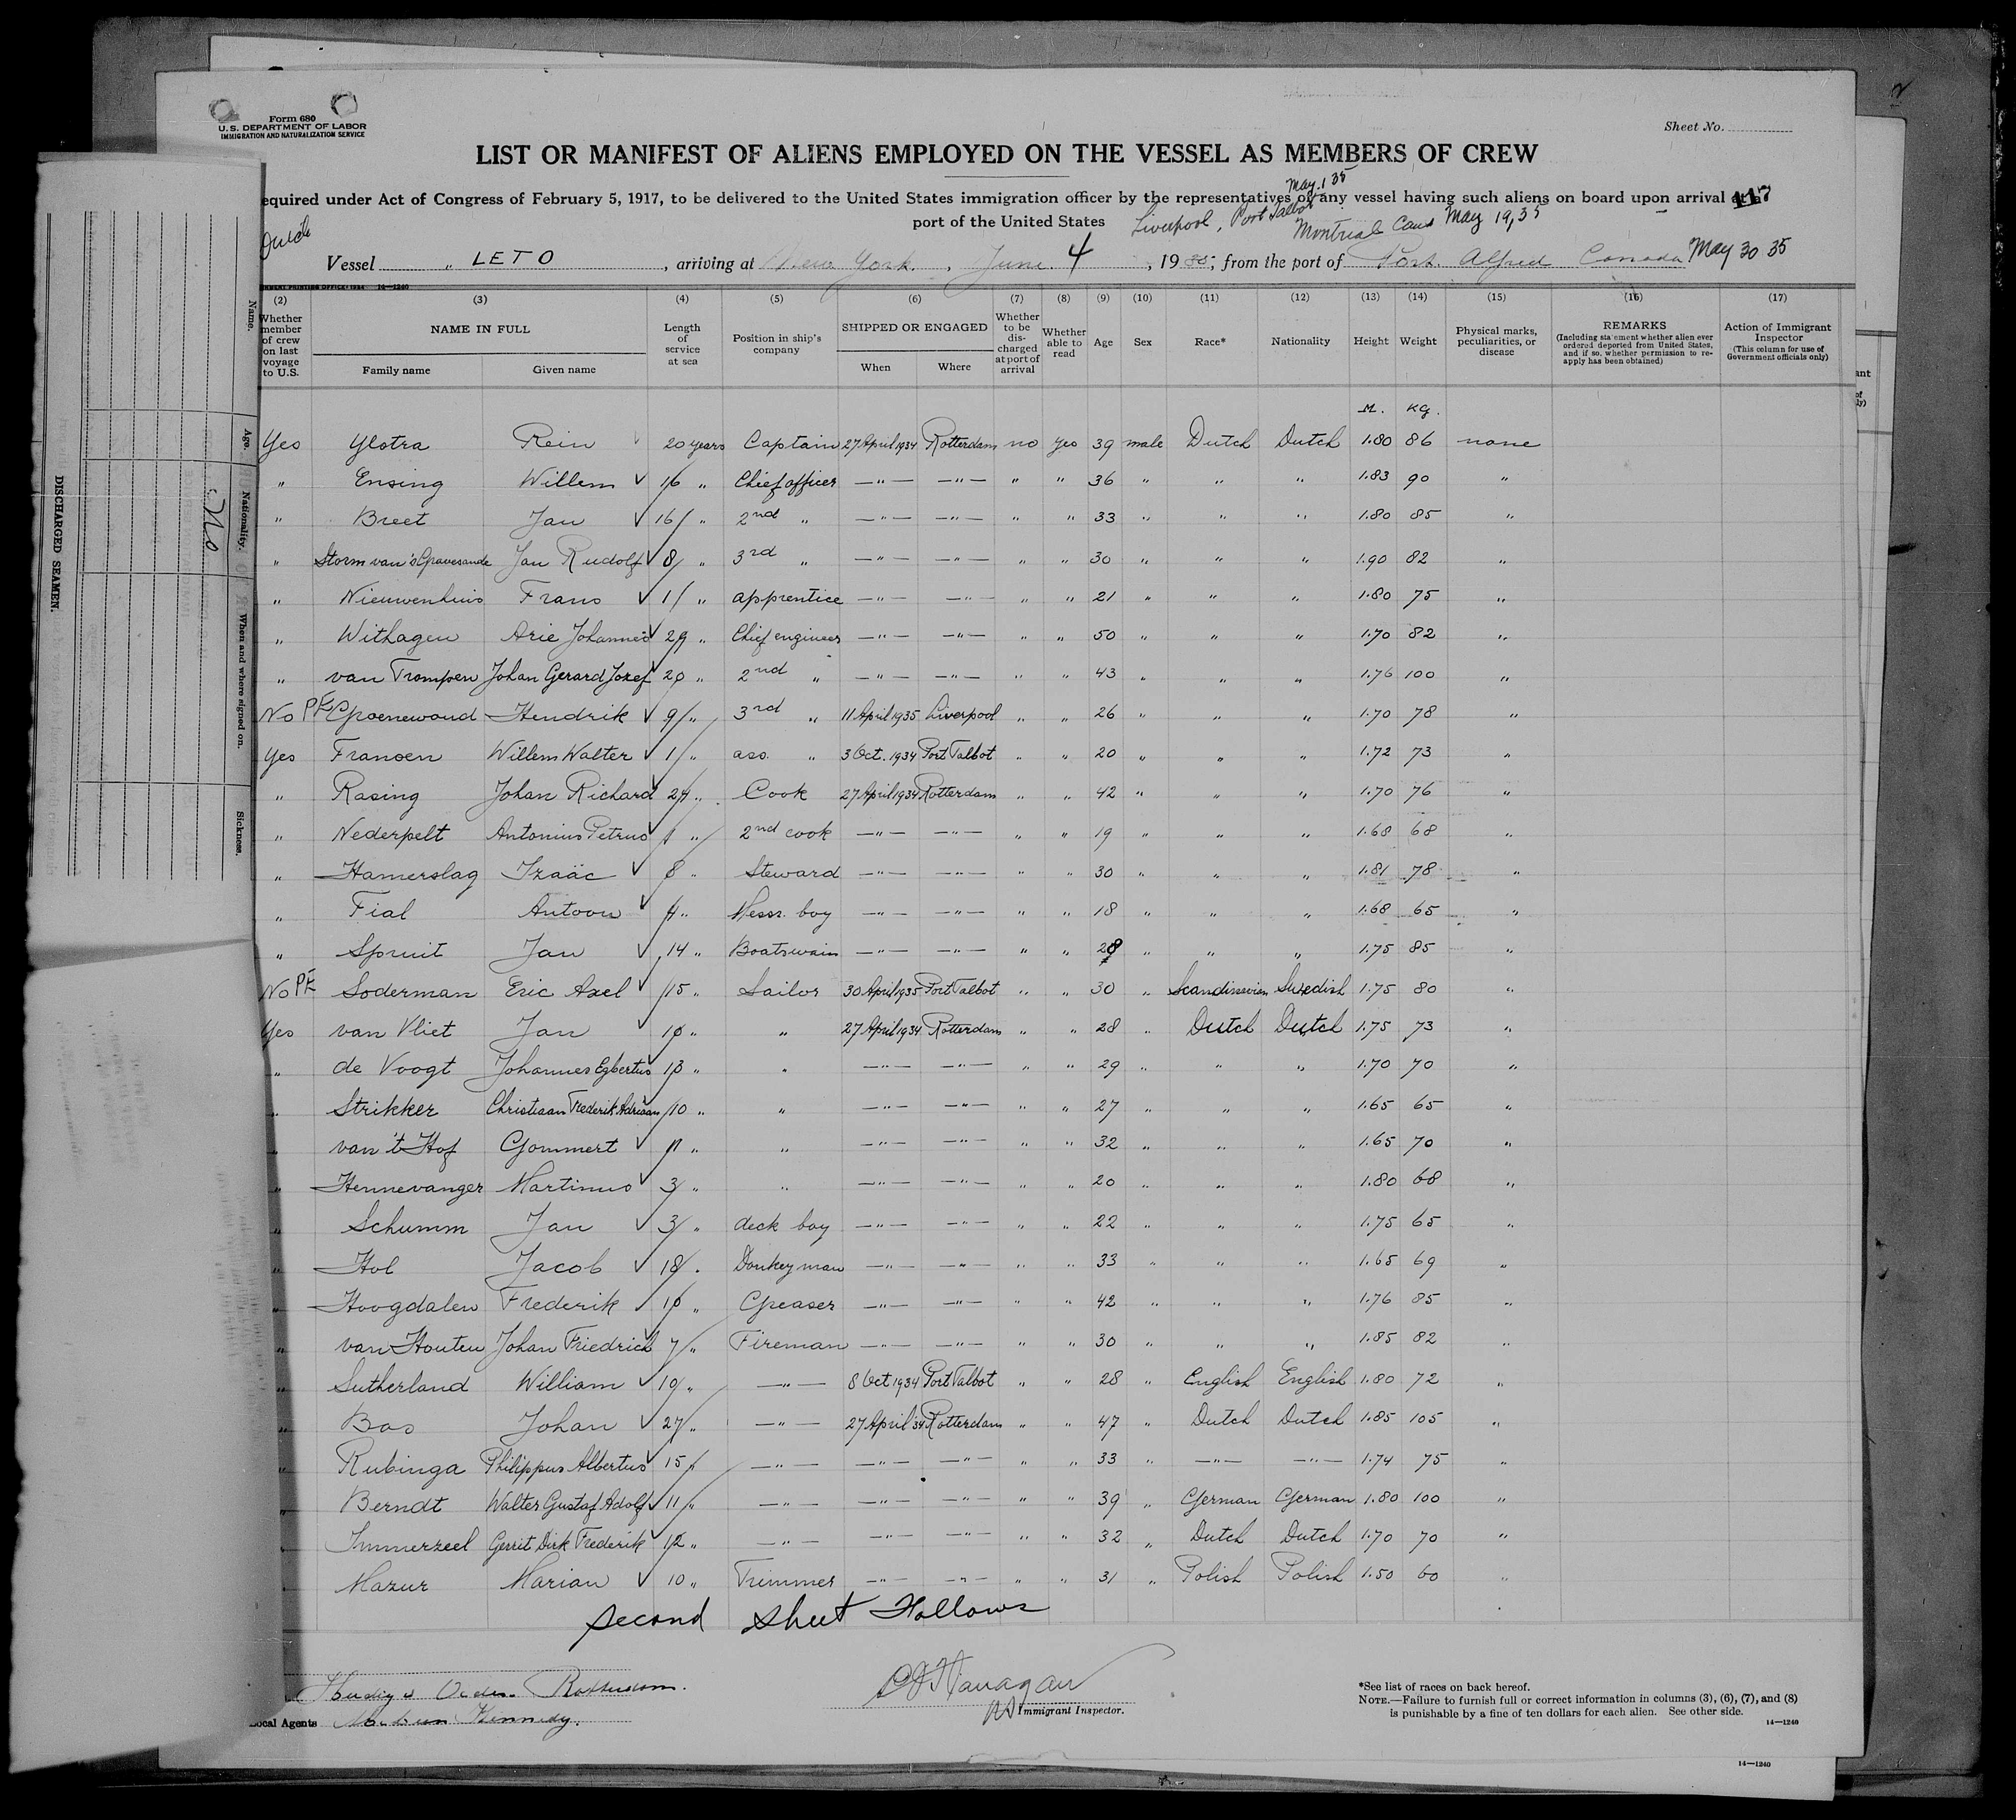 Form 680
U.S. DEPARTMENT OF LABOR
IMMIGRATION AND NATURALIZATION SERVICE
Sheet No.
LIST OR MANIFEST OF ALIENS EMPLOYED ON THE VESSEL AS MEMBERS OF CREW
equired under Act of Congress of February 5, 1917, to be delivered to the United States immigration officer by the representatives of any vessel having such aliens on board upon arrival at a
117
port of the United States
May 1 35
Liverpool, Port Talbot
Montreal Can May 19, 35
Dutch
Vessel " LETO, arriving at New York, June 4, 1935; from the port of Port Alfred Canada May 30 35
14—1240
(2) (3) (4) (5) (6) (7) (8) (9) (10) (11) (12) (13) (14) (15) (16) (17)
Whether member of crew on last voyage to U.S.
NAME IN FULL
Family name Given name
Length of service at sea
Position in ship's company
SHIPPED OR ENGAGED
When Where
Whether to be discharged at port of arrival
Whether able to read
Age Sex Race* Nationality Height Weight
Physical marks, peculiarities, or disease
REMARKS
(Including statement whether alien ever ordered deported from United States, and if so, whether permission to reapply has been obtained)
Action of Immigrant Inspector
(This column for use of Government officials only)
M. KG.
Yes Ylstra Rein 20 years Captain 27 April 1934 Rotterdam no yes 39 male Dutch Dutch 1.80 86 none
" Ensing Willem ✓ 16 " Chief officer —"— —"— " " 36 " " " 1.83 90 "
" Breet Jan ✓ 16 " 2nd " —"— —"— " " 33 " " " 1.80 85 "
" Storm van 's Gravesande Jan Rudolf ✓ 8 " 3rd " —"— —"— " " 30 " " " 1.90 82 "
" Nieuwenhuis Frans ✓ 1 " apprentice —"— —"— " " 21 " " " 1.80 75 "
" Withagen Arie Johannes ✓ 29 " Chief engineer —"— —"— " " 50 " " " 1.70 82 "
" van Trompen Johan Gerard Jozef ✓ 20 " 2nd " —"— —"— " " 43 " " " 1.76 100 "
No PE Groenewoud Hendrik ✓ 9 " 3rd " 11 April 1935 Liverpool " " 26 " " " 1.70 78 "
Yes Fransen Willem Walter ✓ 1 " ass. " 3 Oct. 1934 Port Talbot " " 20 " " " 1.72 73 "
" Rasing Johan Richard ✓ " Cook 27 April 1934 Rotterdam " " 42 " " " 1.70 76 "
" Nederpelt Antonius Petrus ✓ 1 " 2nd cook —"— —"— " " 19 " " " 1.68 68 "
" Hamerslag Izaäc ✓ 8 " Steward —"— —"— " " 30 " " " 1.81 78 "
" Fial Antoon ✓ " Mess. boy —"— —"— " " 18 " " " 1.68 65 "
" Spruit Jan ✓ 14 " Boatswain —"— —"— " " 28 " " " 1.75 85 "
No PE Soderman Eric Axel ✓ 15 " Sailor 30 April 1935 Port Talbot " " 30 " Scandinavian Swedish 1.75 80 "
Yes van Vliet Jan ✓ 10 " " 27 April 1934 Rotterdam " " 28 " Dutch Dutch 1.75 73 "
" de Voogt Johannes Egbertus ✓ 13 " " —"— —"— " " 29 " " " 1.70 70 "
" Strikker Christiaan Frederik Adriaan 10 " " —"— —"— " " 27 " " " 1.65 65 "
" van 't Hof Gommert ✓ 11 " " —"— —"— " " 32 " " " 1.65 70 "
" Hennevanger Martinus ✓ 3 " " —"— —"— " " 20 " " " 1.80 68 "
" Schumm Jan ✓ 3 " deck boy —"— —"— " " 22 " " " 1.75 65 "
" Hol Jacob ✓ 18 " Donkeyman —"— —"— " " 33 " " " 1.65 69 "
" Hoogdalen Frederik ✓ 10 " Greaser —"— —"— " " 42 " " " 1.76 85 "
" van Houten Johan Friedrich 7 " Fireman —"— —"— " " 30 " " " 1.85 82 "
" Sutherland William ✓ 10 " —"— 8 Oct 1934 Port Talbot " " 28 " English English 1.80 72 "
" Bas Johan ✓ 27 " —"— 27 April '34 Rotterdam " " 47 " Dutch Dutch 1.85 105 "
" Rubinga Philippus Albertus ✓ 15 " —"— —"— —"— " " 33 " —"— —"— 1.74 75 "
" Berndt Walter Gustaf Adolf ✓ 11 " —"— —"— —"— " " 39 " German German 1.80 100 "
" Immerzeel Gerrit Dirk Frederik ✓ 12 " —"— —"— —"— " " 32 " Dutch Dutch 1.70 70 "
" Mazur Marian ✓ 10 " Trimmer —"— —"— " " 31 " Polish Polish 1.50 60 "
second sheet Follows
Rotterdam.
Local Agents Kennedy.
Immigrant Inspector.
*See list of races on back hereof.
NOTE.—Failure to furnish full or correct information in columns (3), (6), (7), and (8)
is punishable by a fine of ten dollars for each alien. See other side.
14—1240
14—1240
DISCHARGED SEAMEN.
Name. Age. Nationality. When and where signed on. Sickness.
No